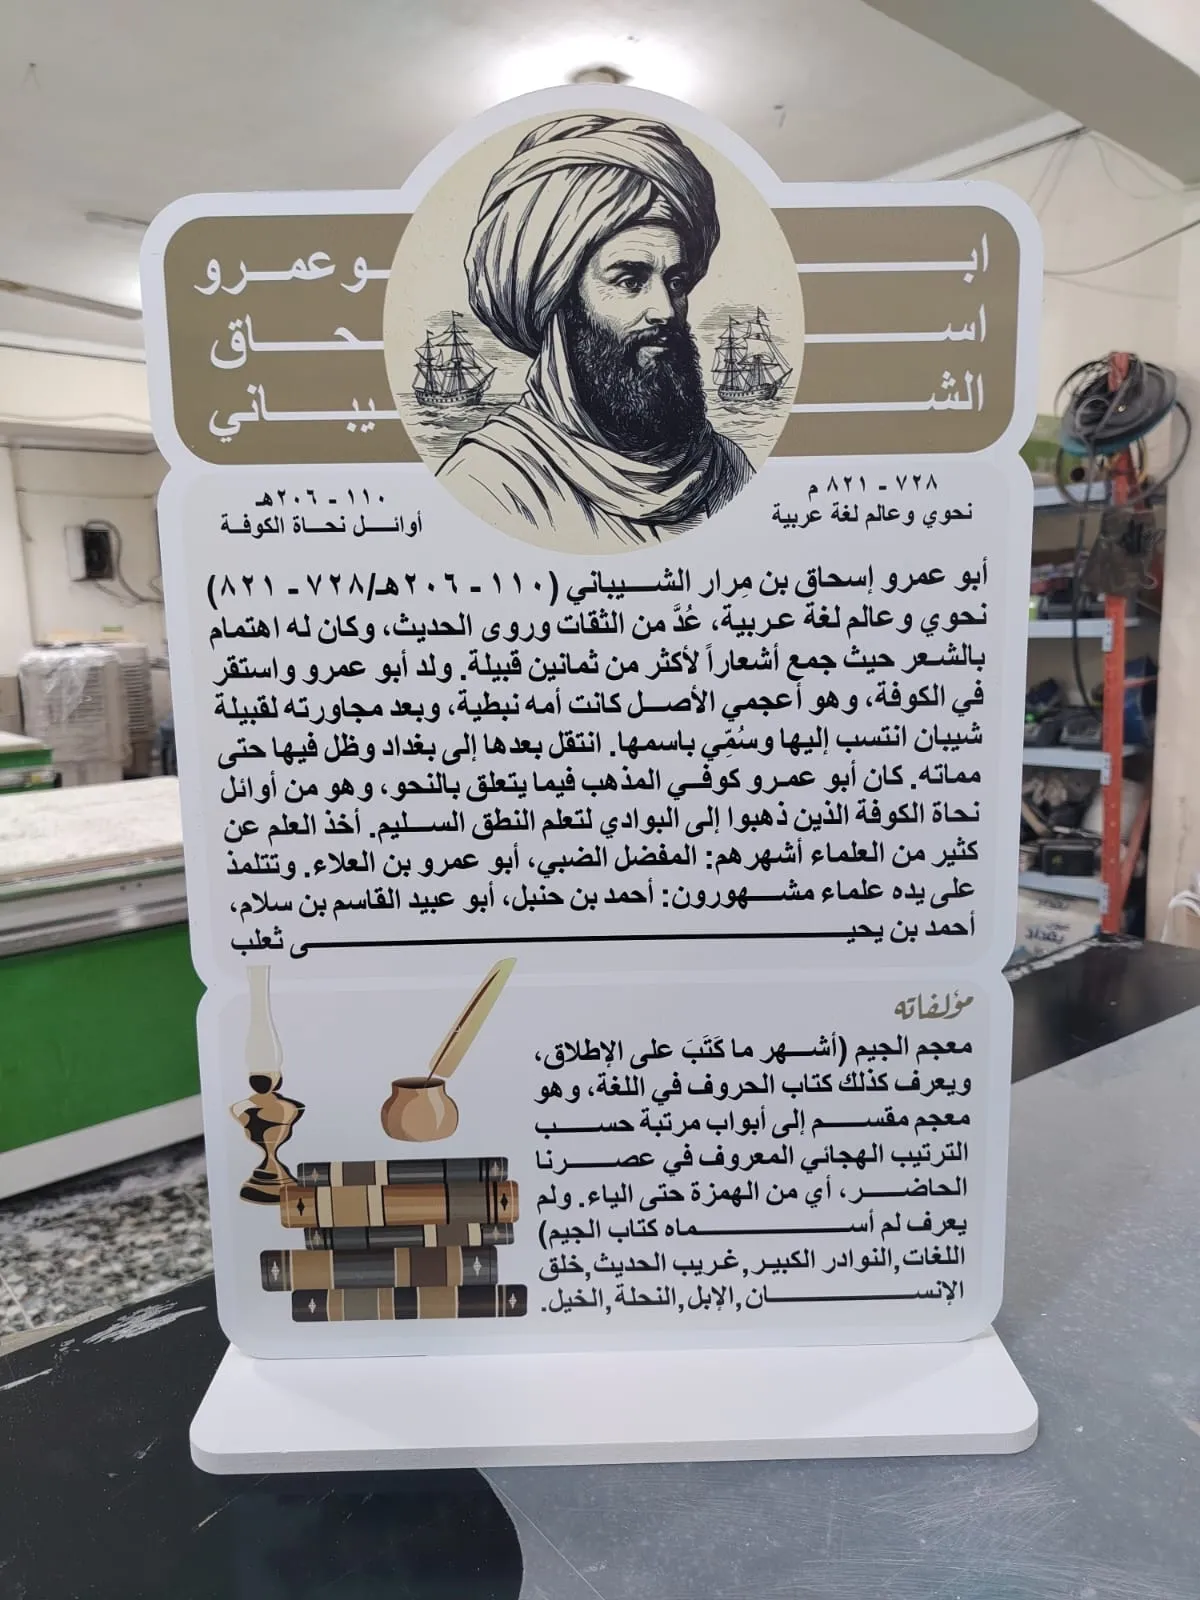 ابو عمرو
اسحاق
الشيباني
٧٢٨ - ٨٢١ م
نحوي وعالم لغة عربية
١١٠ - ٢٠٦هـ
أوائل نحاة الكوفة
أبو عمرو إسحاق بن مِرار الشيباني (١١٠ - ٢٠٦هـ/٧٢٨ - ٨٢١)
نحوي وعالم لغة عربية، عُدَّ من الثقات وروى الحديث، وكان له اهتمام
بالشعر حيث جمع أشعاراً لأكثر من ثمانين قبيلة. ولد أبو عمرو واستقر
في الكوفة، وهو أعجمي الأصل كانت أمه نبطية، وبعد مجاورته لقبيلة
شيبان انتسب إليها وسُمِّي باسمها. انتقل بعدها إلى بغداد وظل فيها حتى
مماته. كان أبو عمرو كوفي المذهب فيما يتعلق بالنحو، وهو من أوائل
نحاة الكوفة الذين ذهبوا إلى البوادي لتعلم النطق السليم. أخذ العلم عن
كثير من العلماء أشهرهم: المفضل الضبي، أبو عمرو بن العلاء. وتتلمذ
على يده علماء مشهورون: أحمد بن حنبل، أبو عبيد القاسم بن سلام،
أحمد بن يحيى ثعلب
مؤلفاته
معجم الجيم (أشهر ما كَتَبَ على الإطلاق،
ويعرف كذلك كتاب الحروف في اللغة، وهو
معجم مقسم إلى أبواب مرتبة حسب
الترتيب الهجائي المعروف في عصرنا
الحاضر، أي من الهمزة حتى الياء. ولم
يعرف لم أسماه كتاب الجيم)
اللغات,النوادر الكبير,غريب الحديث,خلق
الإنسان,الإبل,النحلة,الخيل.